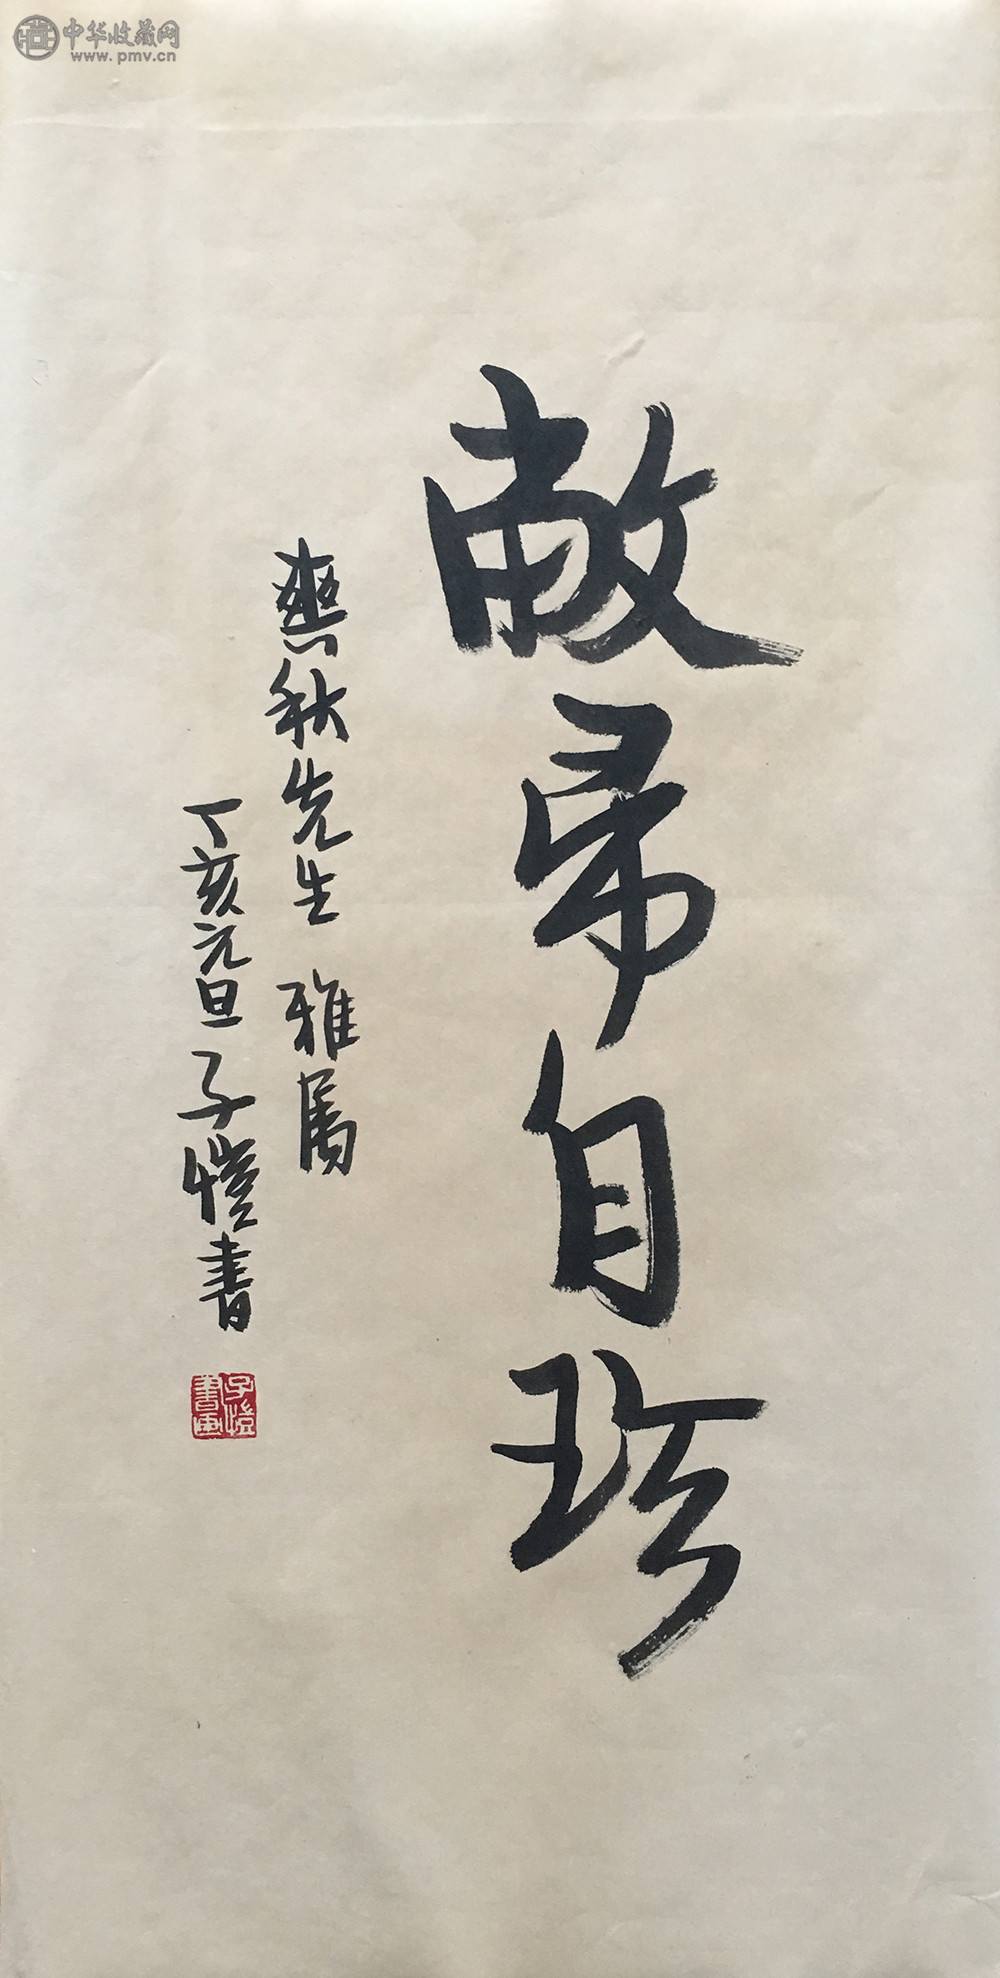 中华收藏网
www.pmv.cn
敝帚自珍
爽秋先生 雅属
丁亥元旦 子愷书
子愷
書画